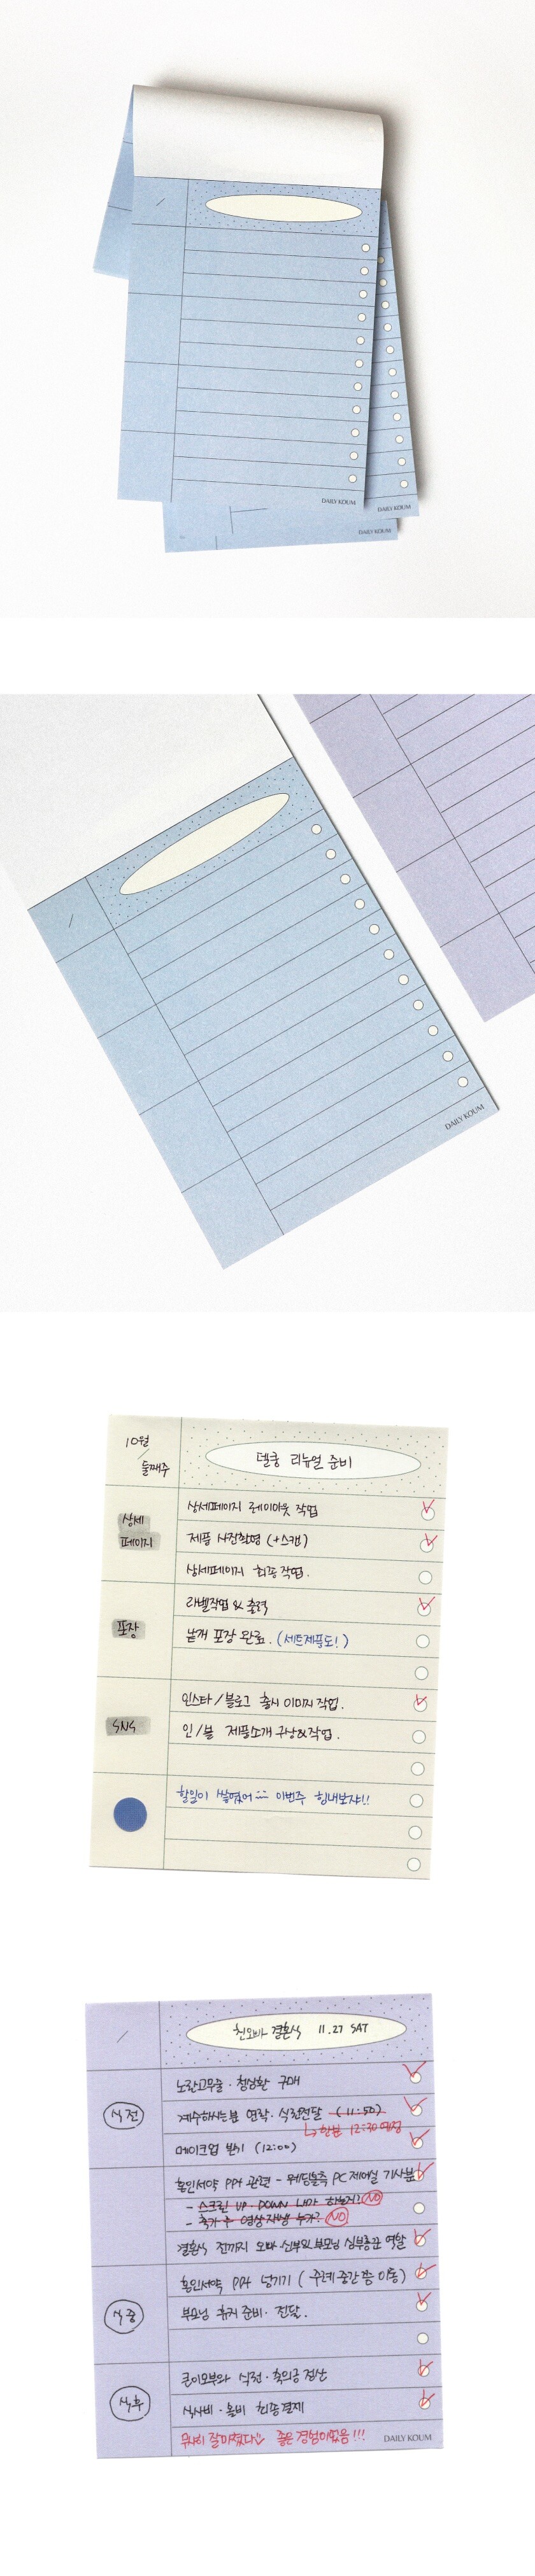 DAILY KOUM
DAILY KOUM
DAILY KOUM
DAILY KOUM
10월
둘째주
델쿵 리뉴얼 준비
상세
페이지
상세페이지 레이아웃 작업
제품 사진촬영 (+스캔)
상세페이지 최종 작업.
포장
라벨작업 & 출력
낱개 포장 완료. (세트제품도!)
SNS
인스타/블로그 출시 이미지 작업.
인/블 제품소개 구상&작업.
할일이 쌓였어 이번주 힘내보자!!
친오빠 결혼식 11.27 SAT
식 전
노란고무줄·청심환 구매
계수하시는분 연락·식권전달 (11:50)
↳ 한분 12:30 예정
메이크업 받기 (12:00)
혼인서약 PPt 관련 - 웨딩홀측 PC제어실 기사분
- 스크린 UP·DOWN 내가 하는지? NO
- 축가 수 영상재생 누가? NO
결혼식 전까지 오빠·신부와 부모님 심부름꾼 역할
식 중
혼인서약 PPt 넘기기 (주례 중간쯤 이동)
부모님 휴지 준비·전달.
식후
큰이모부와 식권·축의금 정산
식사비·홀비 최종결제
무사히 잘마쳤다 좋은 경험이었음!!!
DAILY KOUM